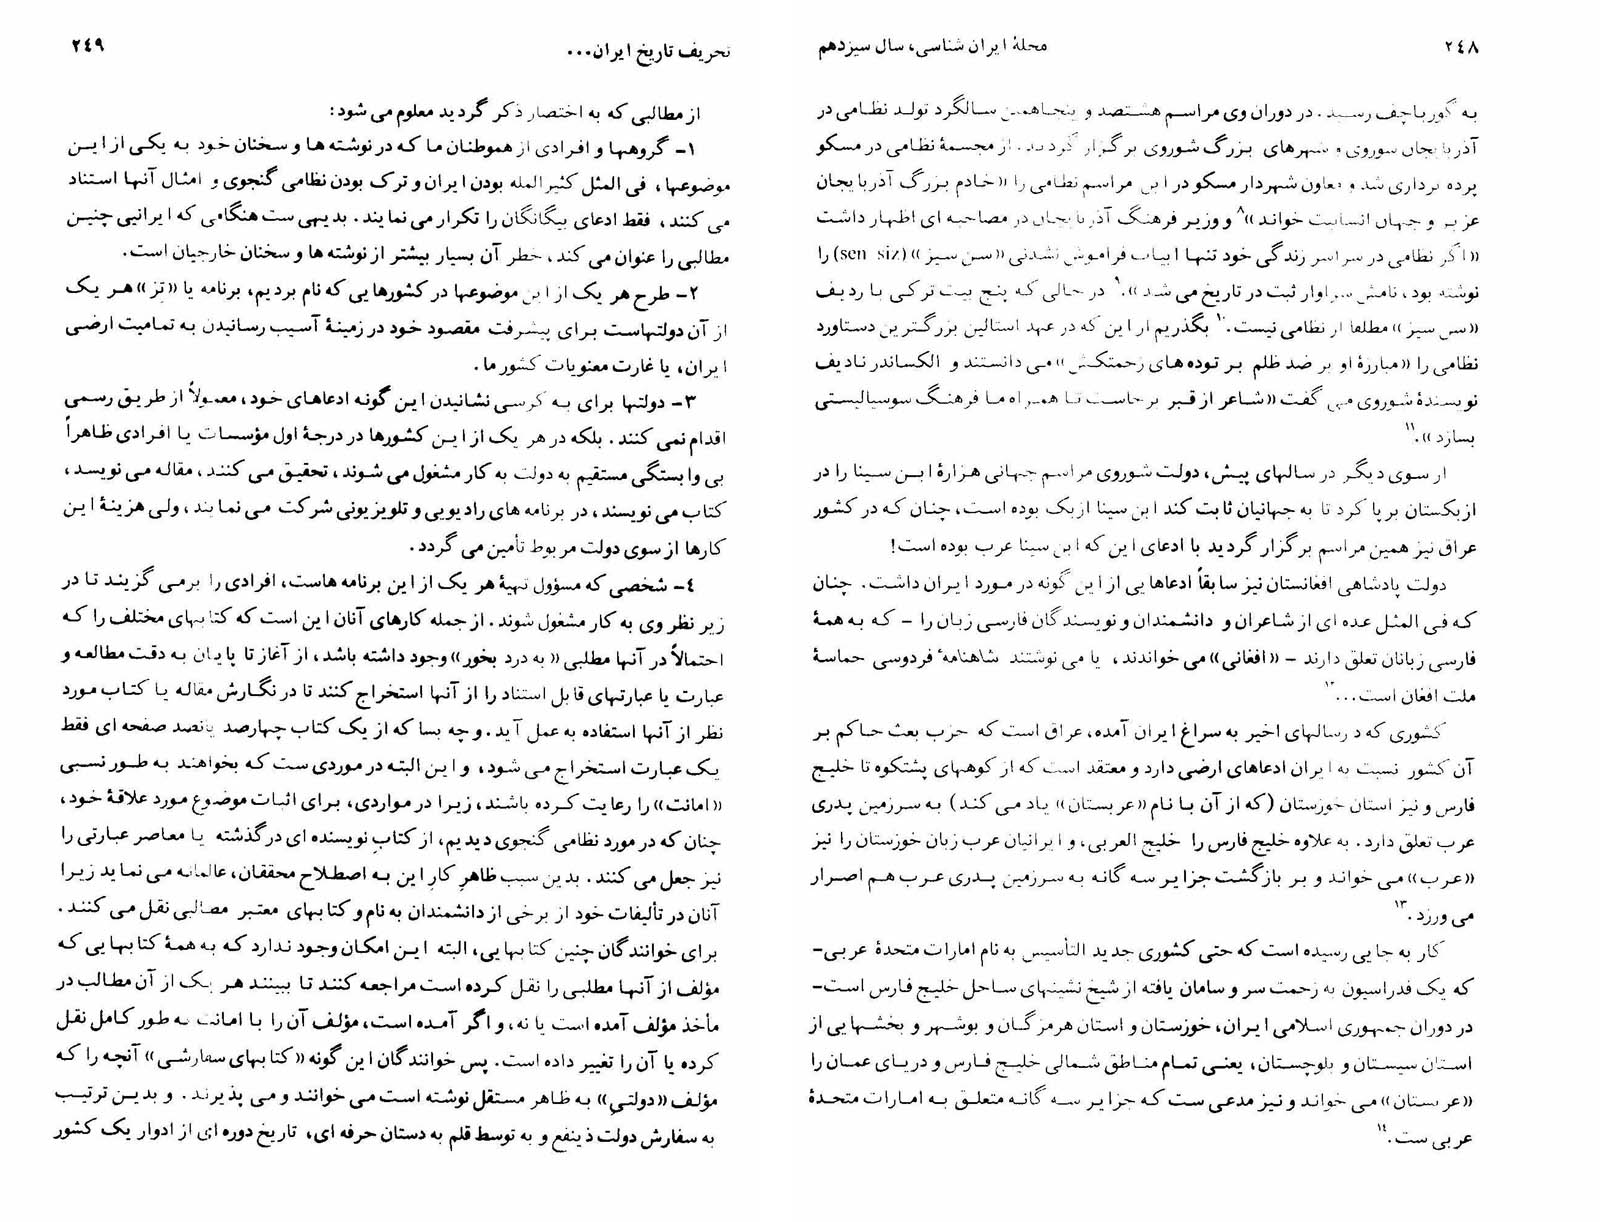 ۲٤۸
مجلهٔ ایران شناسی، سال سیزدهم
به گورباچف رسید. در دوران وی مراسم هشتصد و پنجاهمین سالگرد تولد نظامی در
آذربایجان شوروی و شهرهای بزرگ شوروی برگزار گردید. از مجسمهٔ نظامی در مسکو
پرده برداری شد و معاون شهردار مسکو در این مراسم نظامی را «خادم بزرگ آذربایجان
عزیز و جهان انسانیت خواند»۸ و وزیر فرهنگ آذربایجان در مصاحبه ای اظهار داشت
«اگر نظامی در سراسر زندگی خود تنها ابیات فراموش نشدنی «سن سیز» (sen siz) را
نوشته بود، نامش سزاوار ثبت در تاریخ می شد».۹ در حالی که پنج بیت ترکی با ردیف
«سن سیز» مطلقا از نظامی نیست.۱۰ بگذریم از این که در عهد استالین بزرگترین دستاورد
نظامی را «مبارزهٔ او بر ضد ظلم بر توده های زحمتکش» می دانستند و الکساندر نادیف
نویسندهٔ شوروی می گفت «شاعر از قبر برخاست تا همراه ما فرهنگ سوسیالیستی
بسازد».۱۱
از سوی دیگر در سالهای پیش، دولت شوروی مراسم جهانی هزارهٔ ابن سینا را در
ازبکستان برپا کرد تا به جهانیان ثابت کند ابن سینا ازبک بوده است، چنان که در کشور
عراق نیز همین مراسم برگزار گردید با ادعای این که ابن سینا عرب بوده است!
دولت پادشاهی افغانستان نیز سابقاً ادعاهایی از این گونه در مورد ایران داشت. چنان
که فی المثل عده ای از شاعران و دانشمندان و نویسندگان فارسی زبان را – که به همهٔ
فارسی زبانان تعلق دارند – «افغانی» می خواندند، یا می نوشتند شاهنامهٔ فردوسی حماسهٔ
ملت افغان است...۱۲
کشوری که در سالهای اخیر به سراغ ایران آمده، عراق است که حزب بعث حاکم بر
آن کشور نسبت به ایران ادعاهای ارضی دارد و معتقد است که از کوههای پشتکوه تا خلیج
فارس و نیز استان خوزستان (که از آن با نام «عربستان» یاد می کند) به سرزمین پدری
عرب تعلق دارد. به علاوه خلیج فارس را خلیج العربی، و ایرانیان عرب زبان خوزستان را نیز
«عرب» می خواند و بر بازگشت جزایر سه گانه به سرزمین پدری عرب هم اصرار
می ورزد.۱۳
کار به جایی رسیده است که حتی کشوری جدید التأسیس به نام امارات متحدهٔ عربی–
که یک فدراسیون به زحمت سر و سامان یافته از شیخ نشینهای ساحل خلیج فارس است–
در دوران جمهوری اسلامی ایران، خوزستان و استان هرمزگان و بوشهر و بخشهایی از
استان سیستان و بلوچستان، یعنی تمام مناطق شمالی خلیج فارس و دریای عمان را
«عربستان» می خواند و نیز مدعی ست که جزایر سه گانه متعلق به امارات متحدهٔ
عربی ست.۱٤
تحریف تاریخ ایران...
۲٤۹
از مطالبی که به اختصار ذکر گردید معلوم می شود:
۱– گروهها و افرادی از هموطنان ما که در نوشته ها و سخنان خود به یکی از این
موضوعها، فی المثل کثیرالمله بودن ایران و ترک بودن نظامی گنجوی و امثال آنها استناد
می کنند، فقط ادعای بیگانگان را تکرار می نمایند. بدیهی ست هنگامی که ایرانیی چنین
مطالبی را عنوان می کند، خطر آن بسیار بیشتر از نوشته ها و سخنان خارجیان است.
۲– طرح هر یک از این موضوعها در کشورهایی که نام بردیم، برنامه یا «تز» هر یک
از آن دولتهاست برای پیشرفت مقصود خود در زمینهٔ آسیب رسانیدن به تمامیت ارضی
ایران، یا غارت معنویات کشور ما.
۳– دولتها برای به کرسی نشانیدن این گونه ادعاهای خود، معمولاً از طریق رسمی
اقدام نمی کنند. بلکه در هر یک از این کشورها در درجهٔ اول مؤسسات یا افرادی ظاهراً
بی وابستگی مستقیم به دولت به کار مشغول می شوند، تحقیق می کنند، مقاله می نویسد،
کتاب می نویسند، در برنامه های رادیویی و تلویزیونی شرکت می نمایند، ولی هزینهٔ این
کارها از سوی دولت مربوط تأمین می گردد.
٤– شخصی که مسؤول تهیهٔ هر یک از این برنامه هاست، افرادی را برمی گزیند تا در
زیر نظر وی به کار مشغول شوند. از جمله کارهای آنان این است که کتابهای مختلف را که
احتمالاً در آنها مطلبی «به درد بخور» وجود داشته باشد، از آغاز تا پایان به دقت مطالعه و
عبارت یا عبارتهای قابل استناد را از آنها استخراج کنند تا در نگارش مقاله یا کتاب مورد
نظر از آنها استفاده به عمل آید. و چه بسا که از یک کتاب چهارصد پانصد صفحه ای فقط
یک عبارت استخراج می شود، و این البته در موردی ست که بخواهند به طور نسبی
«امانت» را رعایت کرده باشند، زیرا در مواردی، برای اثبات موضوع مورد علاقهٔ خود،
چنان که در مورد نظامی گنجوی دیدیم، از کتابِ نویسنده ای درگذشته یا معاصر عبارتی را
نیز جعل می کنند. بدین سبب ظاهرِ کارِ این به اصطلاح محققان، عالمانه می نماید زیرا
آنان در تألیفات خود از برخی از دانشمندان به نام و کتابهای معتبر مطالبی نقل می کنند.
برای خوانندگان چنین کتابهایی، البته این امکان وجود ندارد که به همهٔ کتابهایی که
مؤلف از آنها مطلبی را نقل کرده است مراجعه کنند تا ببینند هر یک از آن مطالب در
مأخذ مؤلف آمده است یا نه، و اگر آمده است، مؤلف آن را با امانت به طور کامل نقل
کرده یا آن را تغییر داده است. پس خوانندگان این گونه «کتابهای سفارشی» آنچه را که
مؤلف «دولتی» به ظاهر مستقل نوشته است می خوانند و می پذیرند. و بدین ترتیب
به سفارش دولت ذینفع و به توسط قلم به دستان حرفه ای، تاریخ دوره ای از ادوار یک کشور